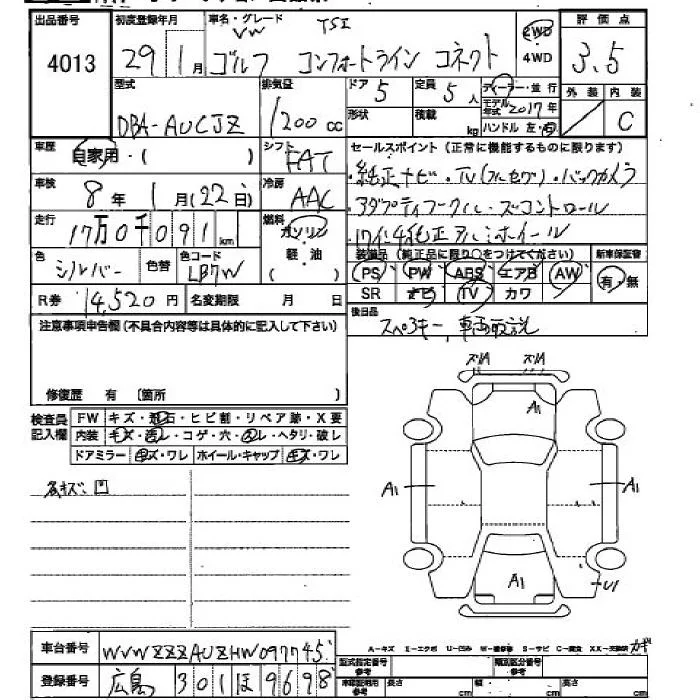 出品番号 初度登録年月 車名・グレード VW TSI 評価点
4013 29年1月 ゴルフ コンフォートライン コネクト 2WD・4WD 3.5
外装 内装 C
型式 排気量 ドア 5 定員 5人 ディーラー・並行
DBA-AUCJZ 1200cc 形状 積載 kg モデル年式 2017年
ハンドル 左・右
車歴 自家用・( ) シフト FAT セールスポイント(正常に機能するものに限ります)
・純正ナビ・TV(フルセグ)・バックカメラ
車検 8年 1月(22日) 冷房 AAC
・アダプティブクルーズコントロール
走行 17万0千091km 燃料 ガソリン・軽油 ( )
・17インチ純正アルミホイール
色 シルバー 色替 色コード LB7W
装備品(純正品に限り○をつけてください) 新車保証書
PS PW ABS エアB AW 有・無
SR ナビ TV カワ
R券 14,520円 名変期限 月 日
後日品
スペアキー、車両取説
注意事項申告欄(不具合内容等は具体的に記入して下さい)
修復歴 有 [箇所 ]
検査員記入欄 FW キズ・飛石・ヒビ割・リペア跡・X要
内装 キズ・汚レ・コゲ・穴・スレ・ヘタリ・破レ
ドアミラー キズ・ワレ ホイール・キャップ キズ・ワレ
ズリA ズリA
A1
A1 A1
A1
U1
各キズ凹
A-キズ E-エクボ U-凹み W-補修跡 S-サビ C-腐食 XX-交換済 ガギ
車台番号 WVWZZZAUZHW097745
登録番号 広島 301 ほ 9698
型式指定番号 参考 類別区分番号 参考
車輌証明有 参考 長さ cm 幅 cm 高さ cm